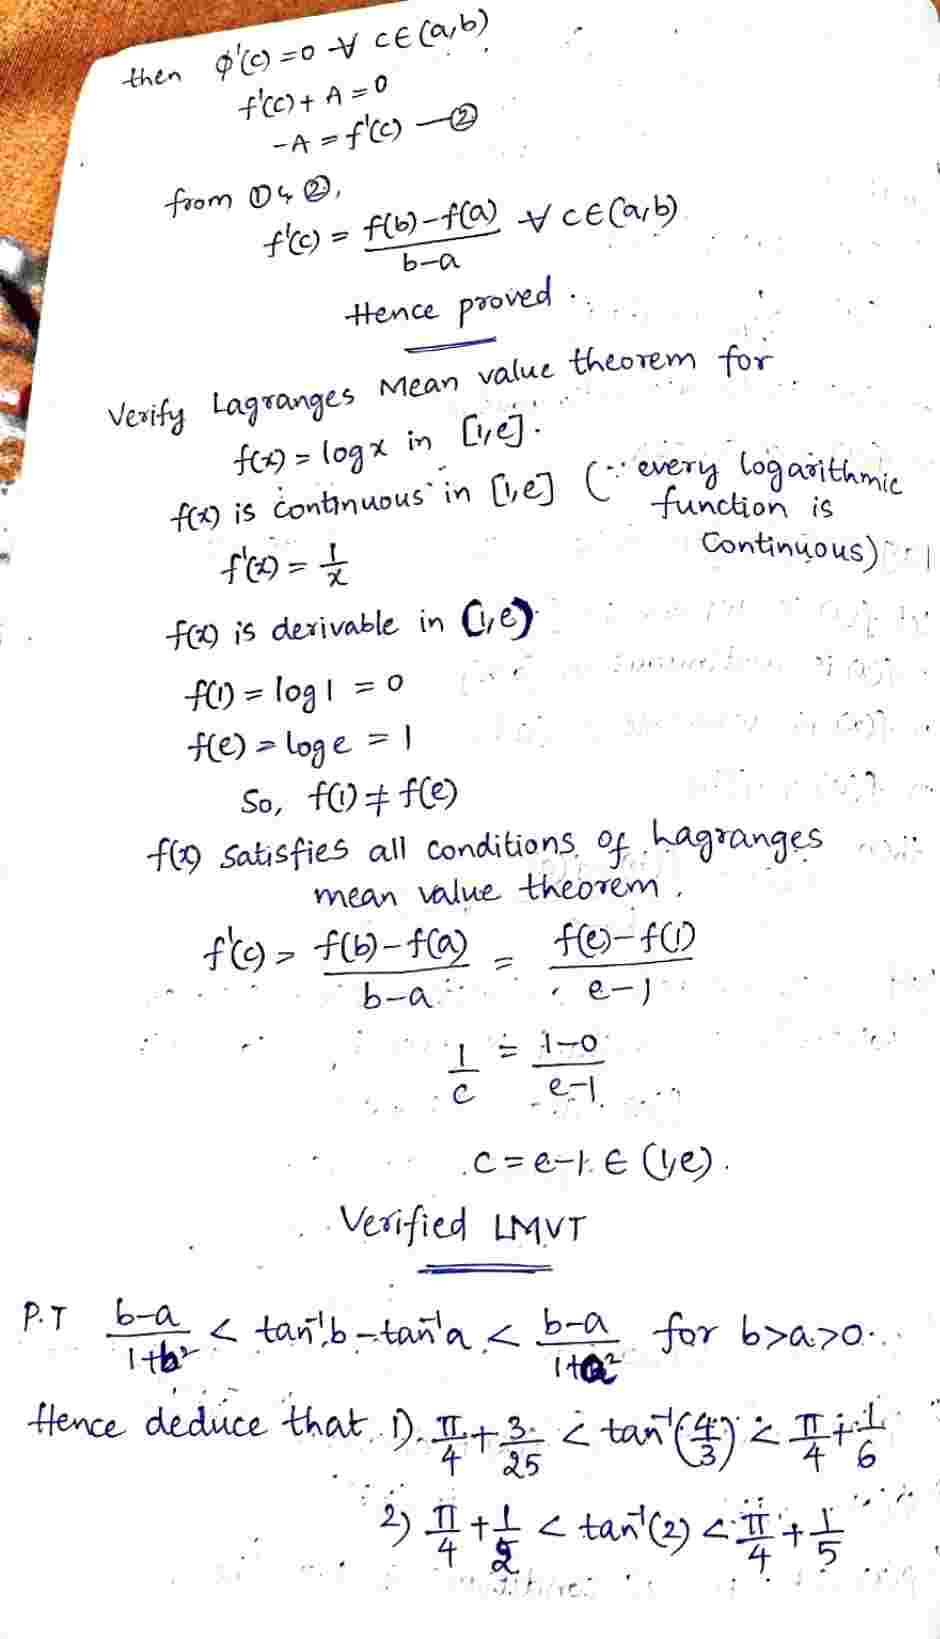 then φ'(c) = 0 ∀ c∈(a,b)
f'(c) + A = 0
-A = f'(c) —②
from ① & ②,
f'(c) = f(b)-f(a) / b-a ∀ c∈(a,b)
Hence proved.
Verify Lagranges Mean value theorem for
f(x) = log x in [1,e].
f(x) is continuous in [1,e] (∵ every logarithmic
function is
Continuous)
f'(x) = 1/x
f(x) is derivable in (1,e)
f(1) = log 1 = 0
f(e) = log e = 1
So, f(1) ≠ f(e)
f(x) satisfies all conditions of Lagranges
mean value theorem.
f'(c) = f(b)-f(a) / b-a = f(e)-f(1) / e-1
1/c = 1-0 / e-1
c = e-1 ∈ (1,e).
Verified LMVT
P.T b-a / 1+b² < tan⁻¹b - tan⁻¹a < b-a / 1+a² for b>a>0.
Hence deduce that 1) π/4 + 3/25 < tan⁻¹(4/3) < π/4 + 1/6
2) π/4 + 1/2 < tan⁻¹(2) < π/4 + 1/5